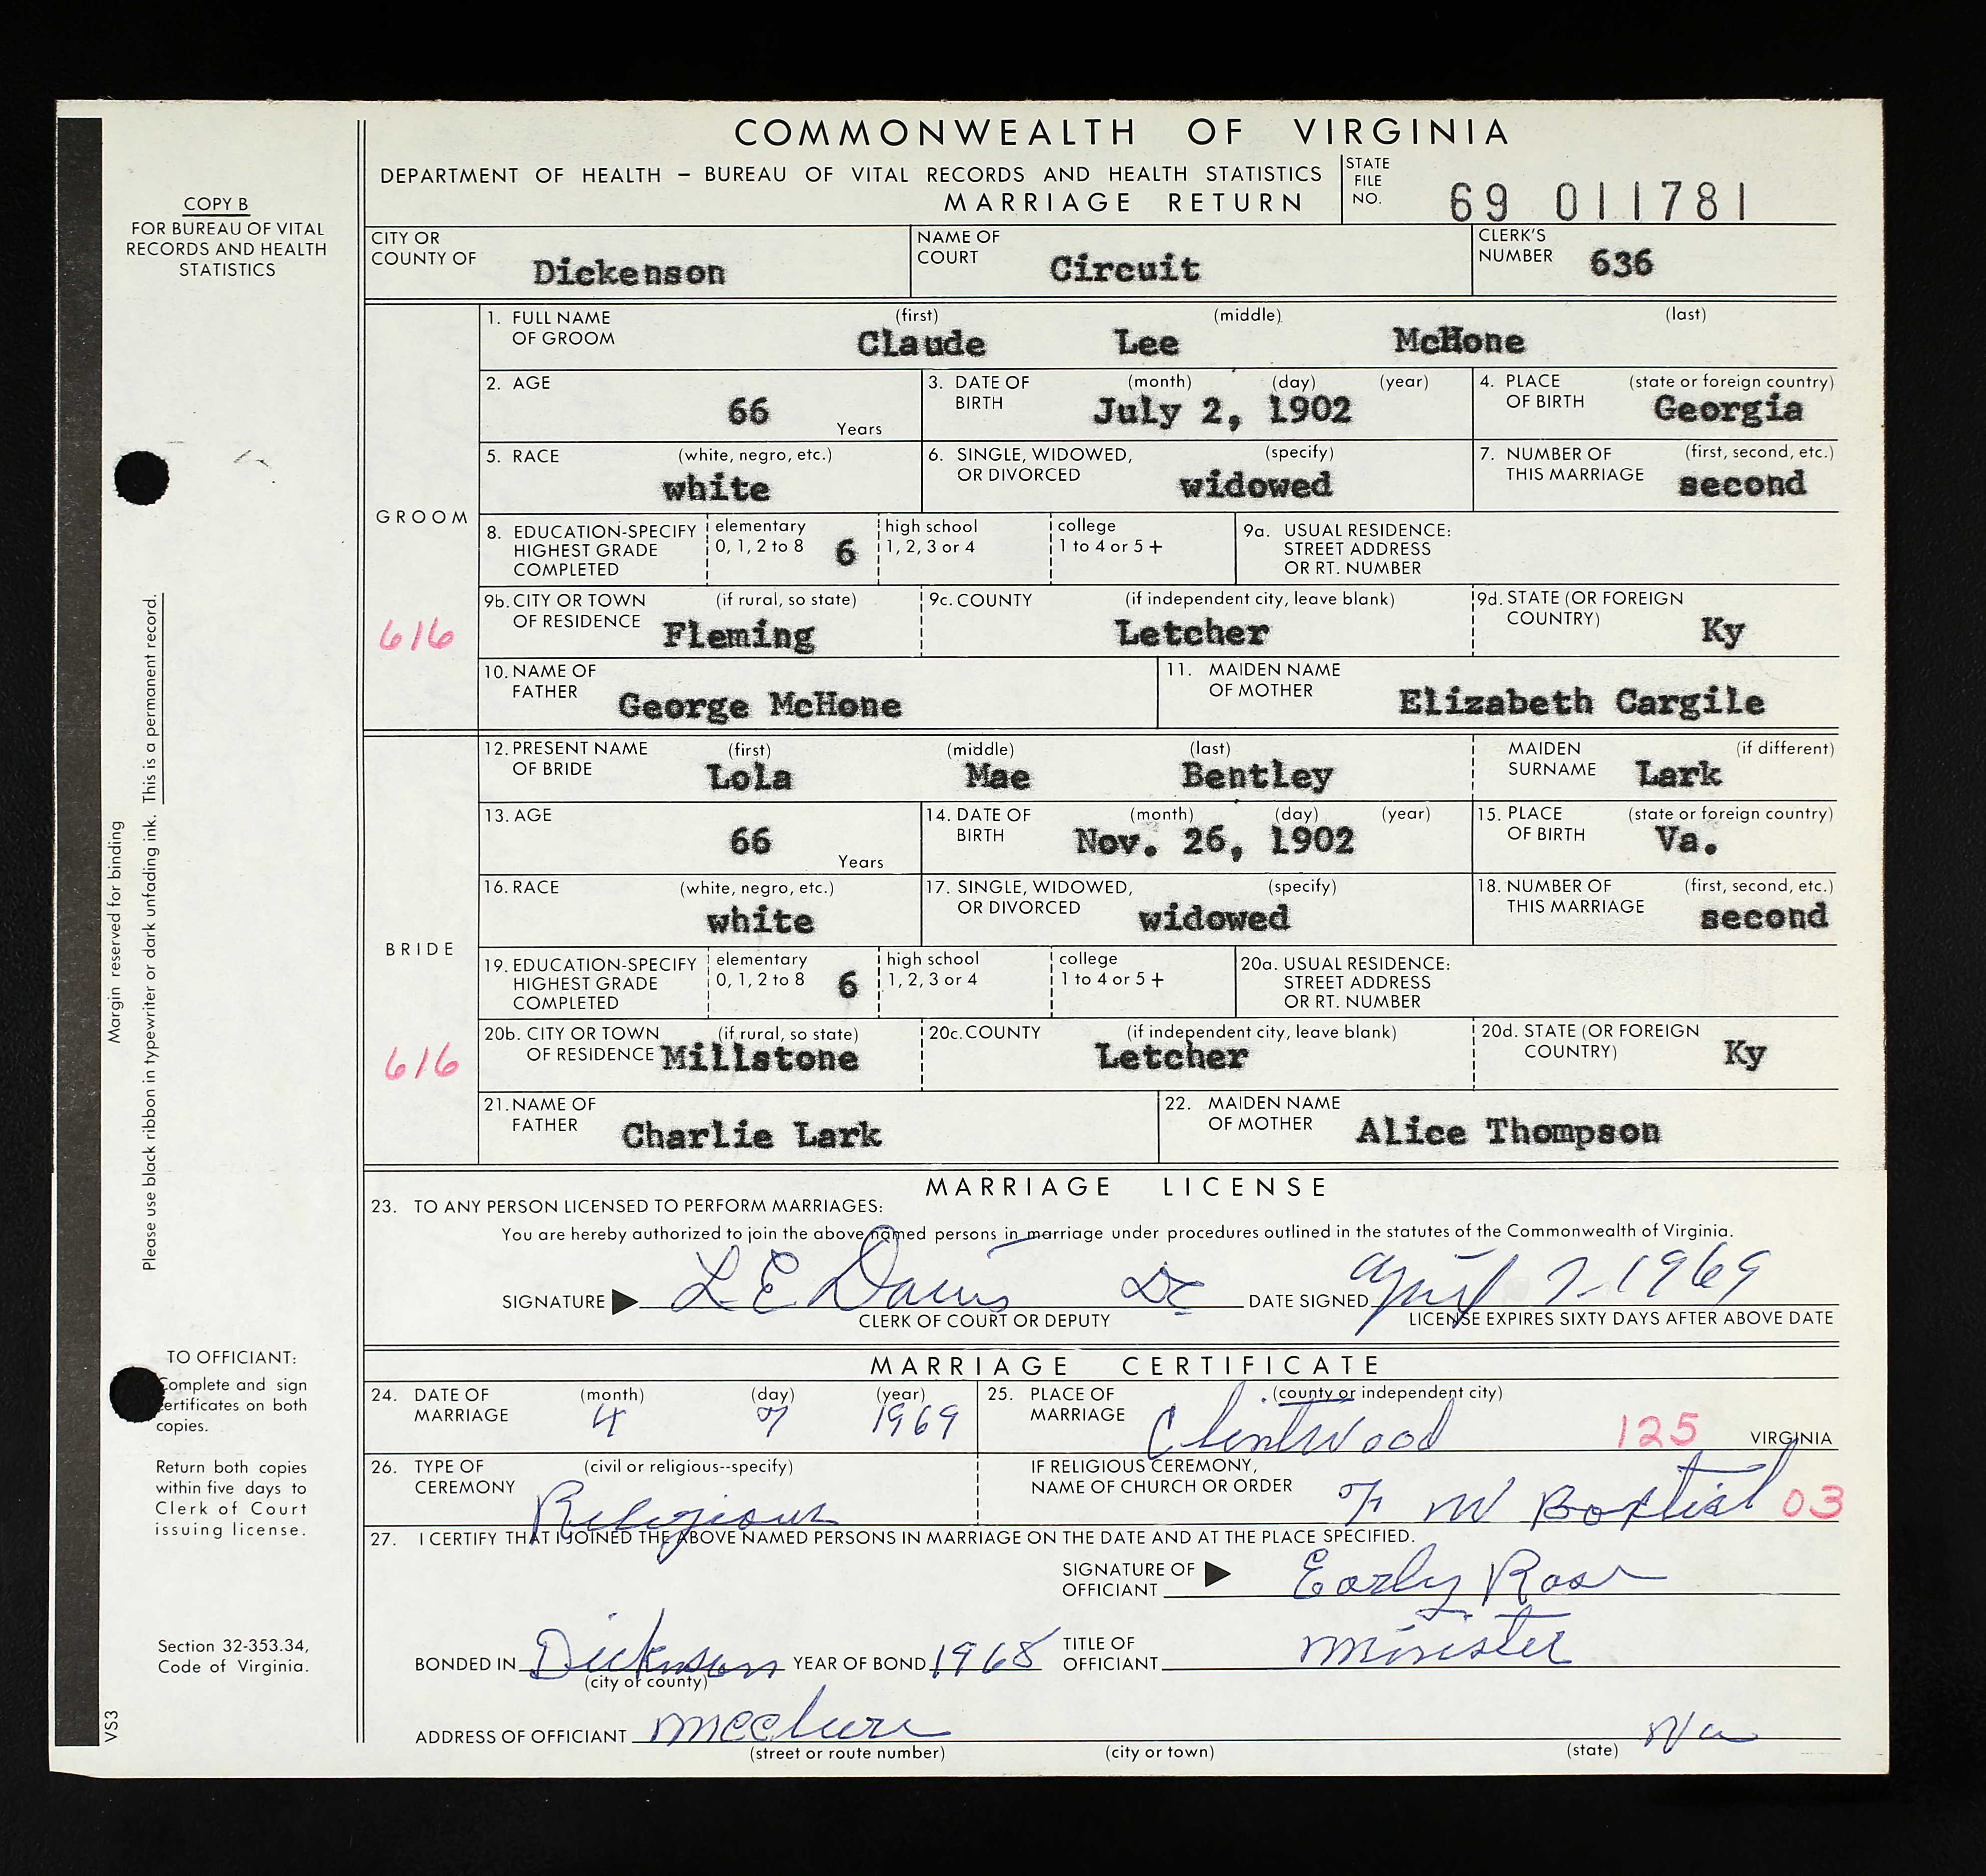 COMMONWEALTH OF VIRGINIA
DEPARTMENT OF HEALTH – BUREAU OF VITAL RECORDS AND HEALTH STATISTICS
MARRIAGE RETURN
STATE FILE NO. 69 011781
COPY B
FOR BUREAU OF VITAL
RECORDS AND HEALTH
STATISTICS
CITY OR COUNTY OF Dickenson NAME OF COURT Circuit CLERK'S NUMBER 636
GROOM
616
1. FULL NAME OF GROOM (first) Claude (middle) Lee (last) McHone
2. AGE 66 Years 3. DATE OF BIRTH (month) (day) (year) July 2, 1902 4. PLACE OF BIRTH (state or foreign country) Georgia
5. RACE (white, negro, etc.) white 6. SINGLE, WIDOWED, OR DIVORCED (specify) widowed 7. NUMBER OF THIS MARRIAGE (first, second, etc.) second
8. EDUCATION-SPECIFY HIGHEST GRADE COMPLETED elementary 0, 1, 2 to 8 6 high school 1, 2, 3 or 4 college 1 to 4 or 5+ 9a. USUAL RESIDENCE: STREET ADDRESS OR RT. NUMBER
9b. CITY OR TOWN OF RESIDENCE (if rural, so state) Fleming 9c. COUNTY (if independent city, leave blank) Letcher 9d. STATE (OR FOREIGN COUNTRY) Ky
10. NAME OF FATHER George McHone 11. MAIDEN NAME OF MOTHER Elizabeth Cargile
BRIDE
616
12. PRESENT NAME OF BRIDE (first) Lola (middle) Mae (last) Bentley MAIDEN SURNAME (if different) Lark
13. AGE 66 Years 14. DATE OF BIRTH (month) (day) (year) Nov. 26, 1902 15. PLACE OF BIRTH (state or foreign country) Va.
16. RACE (white, negro, etc.) white 17. SINGLE, WIDOWED, OR DIVORCED (specify) widowed 18. NUMBER OF THIS MARRIAGE (first, second, etc.) second
19. EDUCATION-SPECIFY HIGHEST GRADE COMPLETED elementary 0, 1, 2 to 8 6 high school 1, 2, 3 or 4 college 1 to 4 or 5+ 20a. USUAL RESIDENCE: STREET ADDRESS OR RT. NUMBER
20b. CITY OR TOWN OF RESIDENCE (if rural, so state) Millstone 20c. COUNTY (if independent city, leave blank) Letcher 20d. STATE (OR FOREIGN COUNTRY) Ky
21. NAME OF FATHER Charlie Lark 22. MAIDEN NAME OF MOTHER Alice Thompson
MARRIAGE LICENSE
23. TO ANY PERSON LICENSED TO PERFORM MARRIAGES:
You are hereby authorized to join the above named persons in marriage under procedures outlined in the statutes of the Commonwealth of Virginia.
SIGNATURE L E Davis DC DATE SIGNED April 7-1969
CLERK OF COURT OR DEPUTY LICENSE EXPIRES SIXTY DAYS AFTER ABOVE DATE
MARRIAGE CERTIFICATE
24. DATE OF MARRIAGE (month) 4 (day) 7 (year) 1969 25. PLACE OF MARRIAGE (county or independent city) Clintwood 125 VIRGINIA
26. TYPE OF CEREMONY (civil or religious--specify) Religious IF RELIGIOUS CEREMONY, NAME OF CHURCH OR ORDER F W Baptist 03
27. I CERTIFY THAT I JOINED THE ABOVE NAMED PERSONS IN MARRIAGE ON THE DATE AND AT THE PLACE SPECIFIED.
SIGNATURE OF OFFICIANT Early Rose
BONDED IN Dickenson (city or county) YEAR OF BOND 1968 TITLE OF OFFICIANT minister
ADDRESS OF OFFICIANT McClure Va
(street or route number) (city or town) (state)
Margin reserved for binding
Please use black ribbon in typewriter or dark unfading ink. This is a permanent record.
TO OFFICIANT:
Complete and sign
certificates on both
copies.
Return both copies
within five days to
Clerk of Court
issuing license.
Section 32-353.34,
Code of Virginia.
VS3